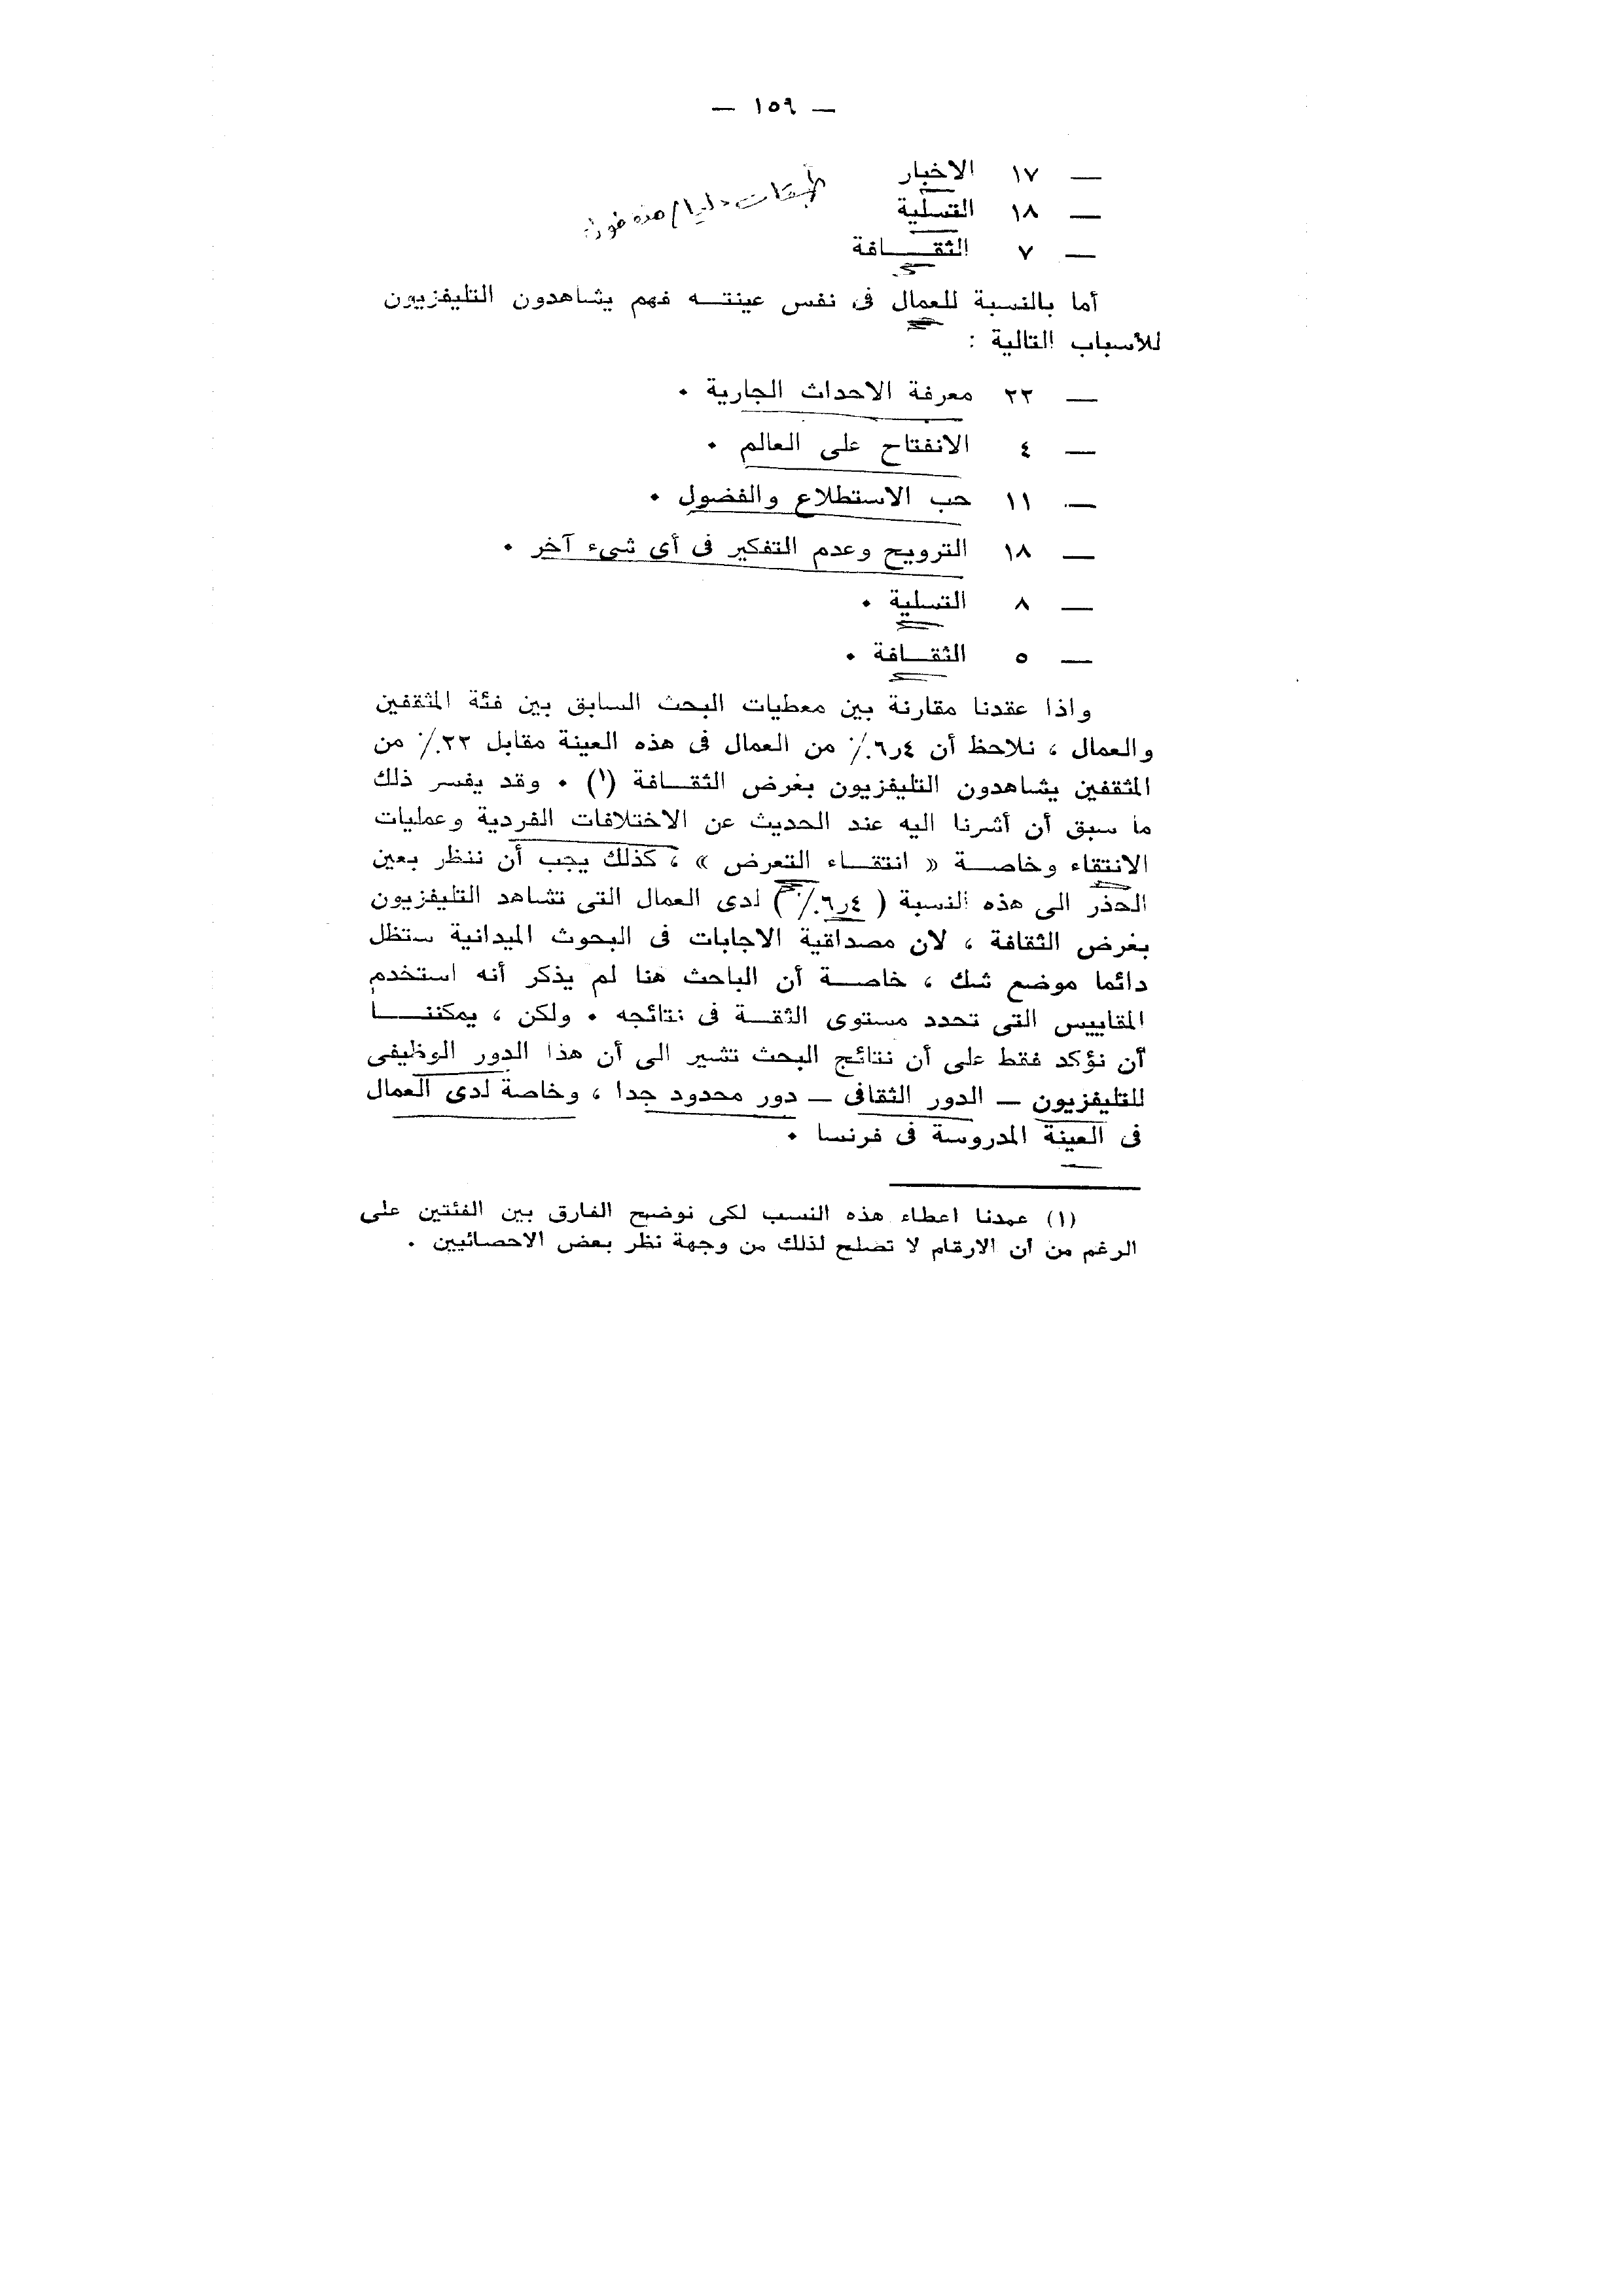 — ١٥٩ —
— ١٧ الاخبار
— ١٨ التسلية
— ٧ الثقـــافة
أما بالنسبة للعمال فى نفس عينتـــه فهم يشاهدون التليفزيون
للأسباب التالية :
— ٢٢ معرفة الاحداث الجارية ٠
— ٤ الانفتاح على العالم ٠
— ١١ حب الاستطلاع والفضول ٠
— ١٨ الترويح وعدم التفكير فى أى شىء آخر ٠
— ٨ التسلية ٠
— ٥ الثقـــافة ٠
واذا عقدنا مقارنة بين معطيات البحث السابق بين فئة المثقفين
والعمال ، نلاحظ أن ٤ر٦٪ من العمال فى هذه العينة مقابل ٢٢٪ من
المثقفين يشاهدون التليفزيون بغرض الثقـــافة (١) ٠ وقد يفسر ذلك
ما سبق أن أشرنا اليه عند الحديث عن الاختلافات الفردية وعمليات
الانتقاء وخاصـــة « انتقـــاء التعرض » ، كذلك يجب أن ننظر بعين
الحذر الى هذه النسبة ( ٤ر٦٪ ) لدى العمال التى تشاهد التليفزيون
بغرض الثقافة ، لان مصداقية الاجابات فى البحوث الميدانية ستظل
دائما موضع شك ، خاصـــة أن الباحث هنا لم يذكر أنه استخدم
المقاييس التى تحدد مستوى الثقـــة فى نتائجه ٠ ولكن ، يمكننـــا
أن نؤكد فقط على أن نتائج البحث تشير الى أن هذا الدور الوظيفى
للتليفزيون — الدور الثقافى — دور محدود جدا ، وخاصة لدى العمال
فى العينة المدروسة فى فرنسا ٠
(١) عمدنا اعطاء هذه النسب لكى نوضح الفارق بين الفئتين على
الرغم من أن الارقام لا تصلح لذلك من وجهة نظر بعض الاحصائيين .